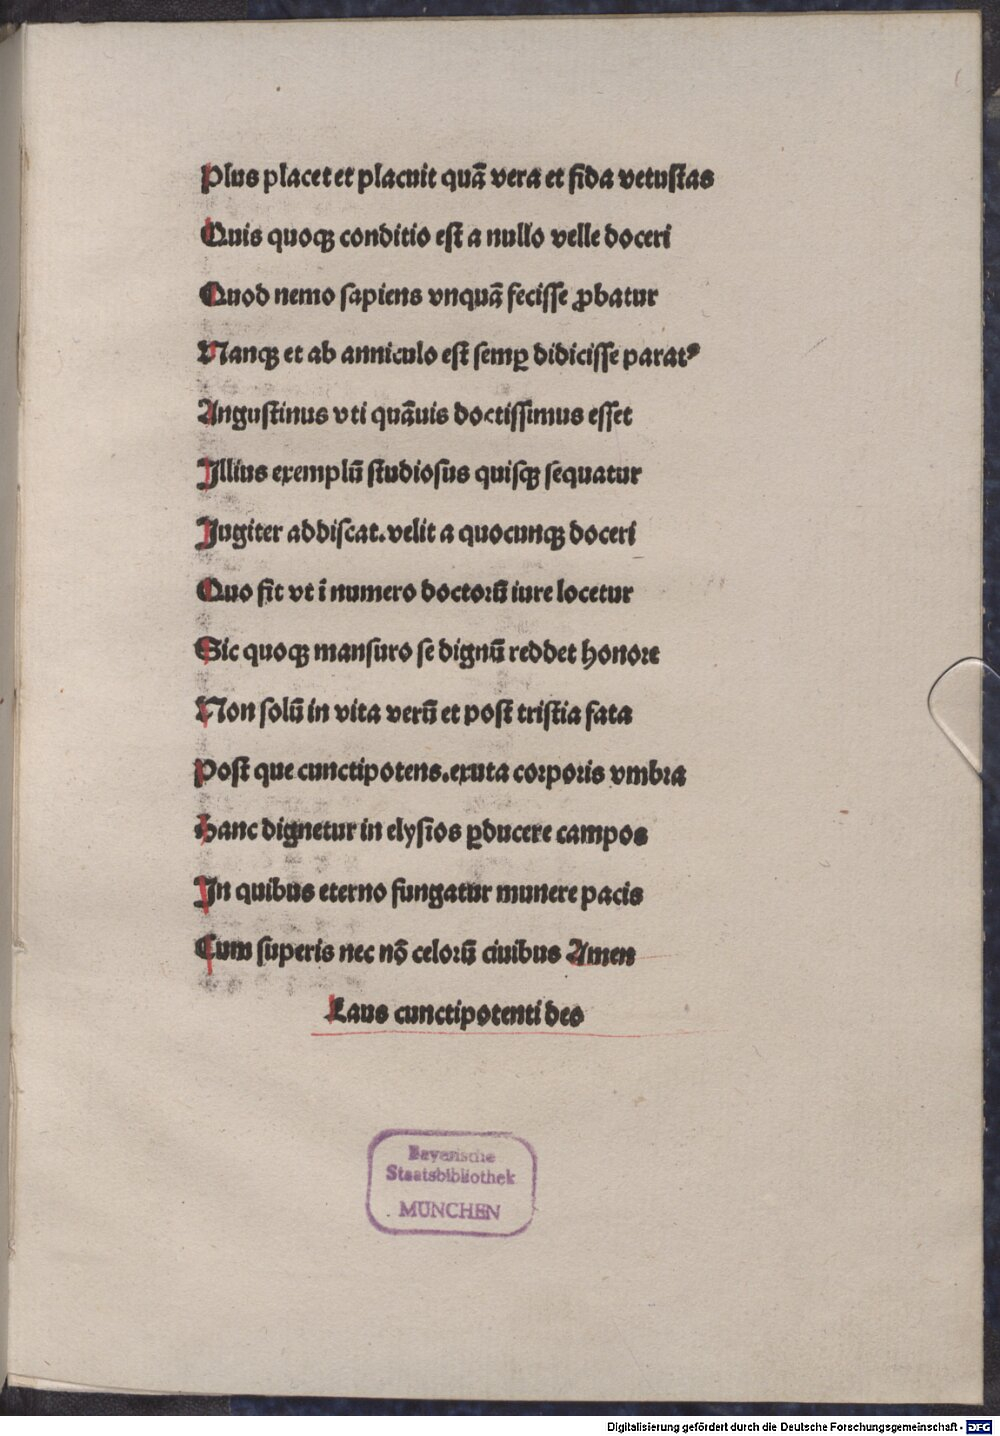 Plus placet et placuit quā vera et fida vetustas
Quis quoqꝫ conditio est a nullo velle doceri
Quod nemo sapiens vnquā fecisse ꝓbatur
Nanqꝫ et ab anniculo est semꝑ didicisse paratꝰ
Angustinus vti quāuis doctissimus esset
Illius exemplū studiosus quisqꝫ sequatur
Jugiter addiscat. velit a quocunqꝫ doceri
Quo fit vt ī numero doctorū iure locetur
Sic quoqꝫ mansuro se dignū reddet honore
Non solū in vita verū et post tristia fata
Post que cunctipotens. exuta corporis vmbra
Hanc dignetur in elysios ꝑducere campos
In quibus eterno fungatur munere pacis
Cum superis nec nō celorū ciuibus Amen
Laus cunctipotenti deo
Bayerische
Staatsbibliothek
MÜNCHEN
Digitalisierung gefördert durch die Deutsche Forschungsgemeinschaft - DFG